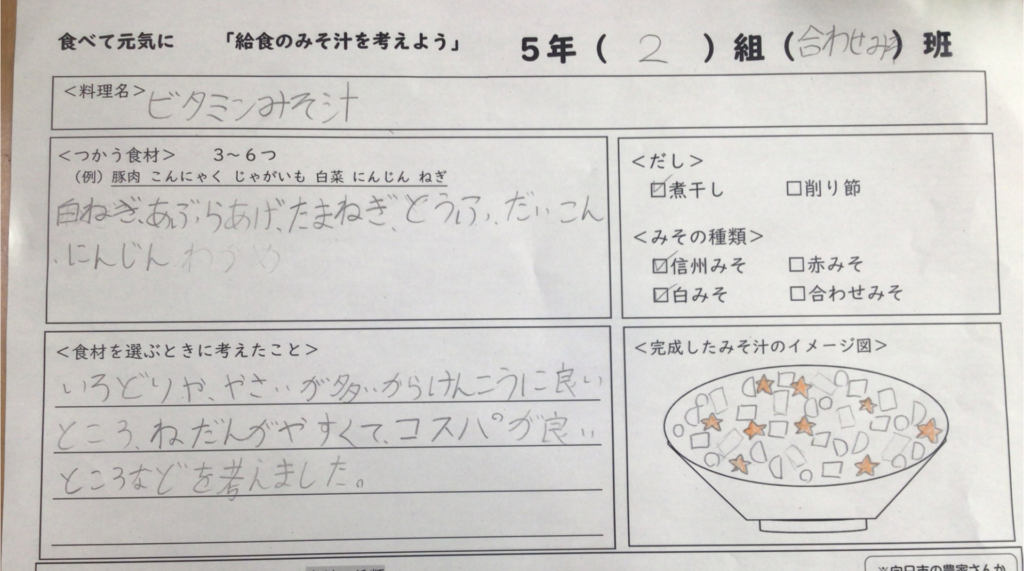 食べて元気に 「給食のみそ汁を考えよう」 5年(2)組(合わせみそ)班
<料理名>ビタミンみそ汁
<つかう食材> 3～6つ
(例)豚肉 こんにゃく じゃがいも 白菜 にんじん ねぎ
白ねぎ、あぶらあげ、たまねぎ、とうふ、だいこん
、にんじん わかめ
<だし>
☑煮干し □削り節
<みその種類>
☑信州みそ □赤みそ
☑白みそ □合わせみそ
<食材を選ぶときに考えたこと>
いろどりや、やさいが多いからけんこうに良い
ところ、ねだんがやすくて、コスパが良い
ところなどを考えました。
<完成したみそ汁のイメージ図>
※向日市の農家さんか